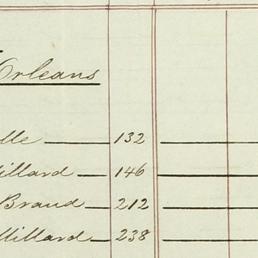 Orleans
lle — 132
illard — 146
Braud — 212
Millard — 238